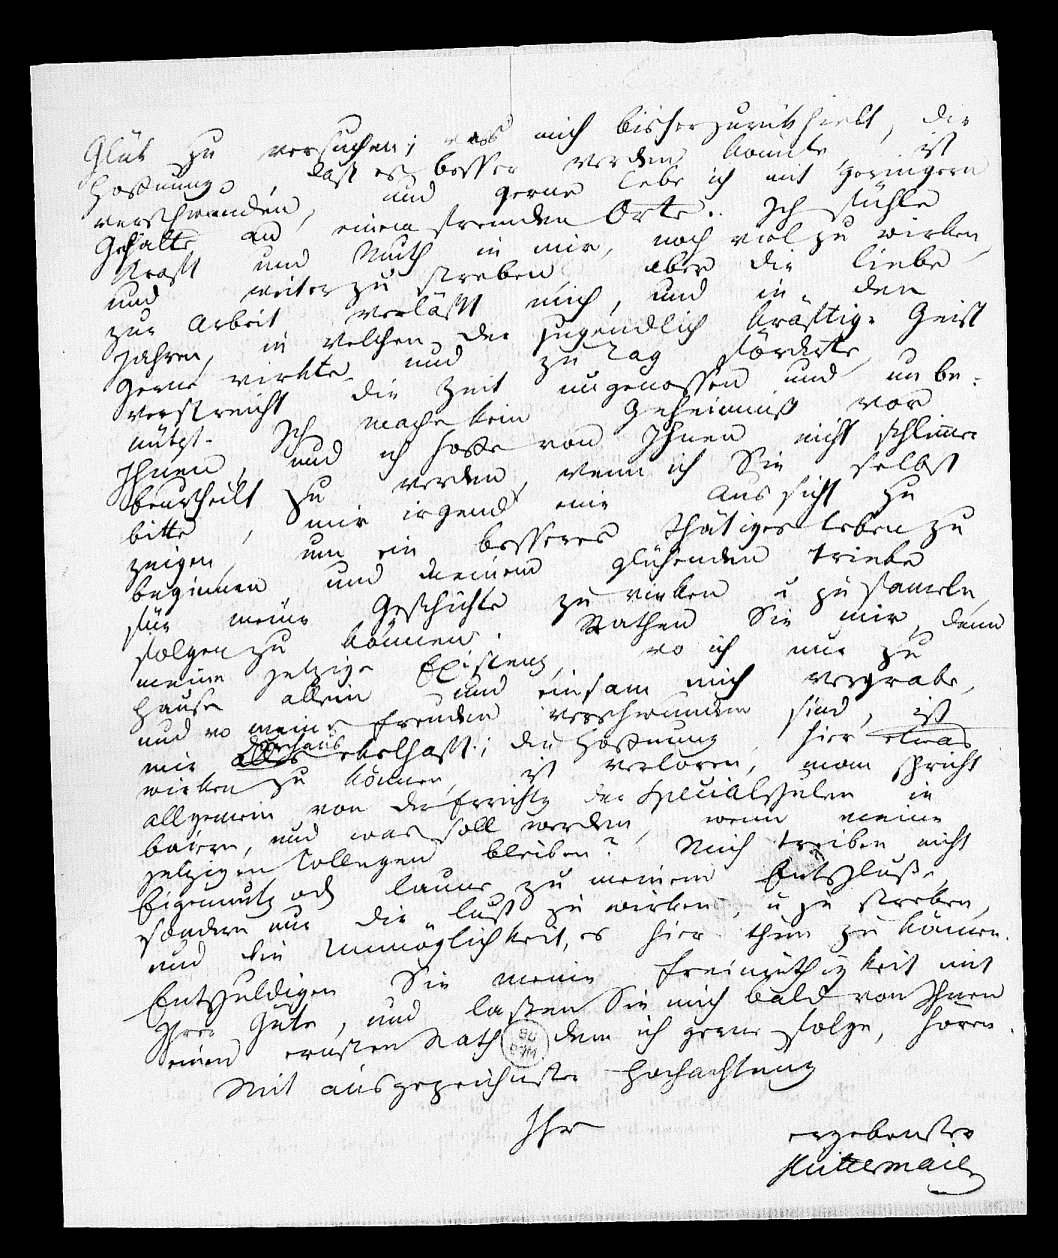 Glük zu versuchen; was mich bisher zurükhielt, die
Hoffnung, daß es besser werden könnte, ist
verschwunden, und gerne lebe ich mit geringerm
Gehalte an einem fremden Orte. Ich fühle
Kraft und Muth in mir, noch viel zu wirken,
und weiter zu streben, aber die Liebe
zur Arbeit verläßt mich, und in den
Jahren, in welchen der jugendlich kräftige Geist
gerne wirkte und zu Tag förderte,
verstreicht die Zeit ungenossen und unbe-
nützt. Ich mache kein Geheimniß vor
Ihnen, und ich hoffe von Ihnen nicht schlimmer
beurtheilt zu werden, wenn ich Sie selbst
bitte, mir irgend eine Aussicht zu
zeigen, um ein besseres thätiges Leben zu
beginnen und meinem glühenden Triebe
für meine Geschichte zu wirken u zu sameln,
folgen zu können. Rathen Sie mir, denn
meine jetzige Existenz, wo ich nur zu
Hause allein und einsam mich vergrabe,
und wo meine Freuden verschwunden sind, ist
mir alles durchaus ekelhaft; die Hoffnung, hier etwas
wirken zu können, ist verloren, man spricht
allgemein von der Errichtg der Specialschulen in
Baiern, und was soll werden, wenn meine
jetzigen Collegen bleiben? Mich treiben nicht
Eigennutz od Laune zu meinem Entschluße,
sondern nur die Lust zu wirken, u zu streben,
und die Unmöglichkeit, es hier thun zu können.
Entschuldigen Sie meine Freimüthigkeit mit
Ihrer Güte, und lassen Sie mich bald von Ihnen
einen ernsten Rath, dem ich gerne folge, hören.
Mit ausgezeichneter Hochachtung
Ihr
ergebenster
Mittermaier